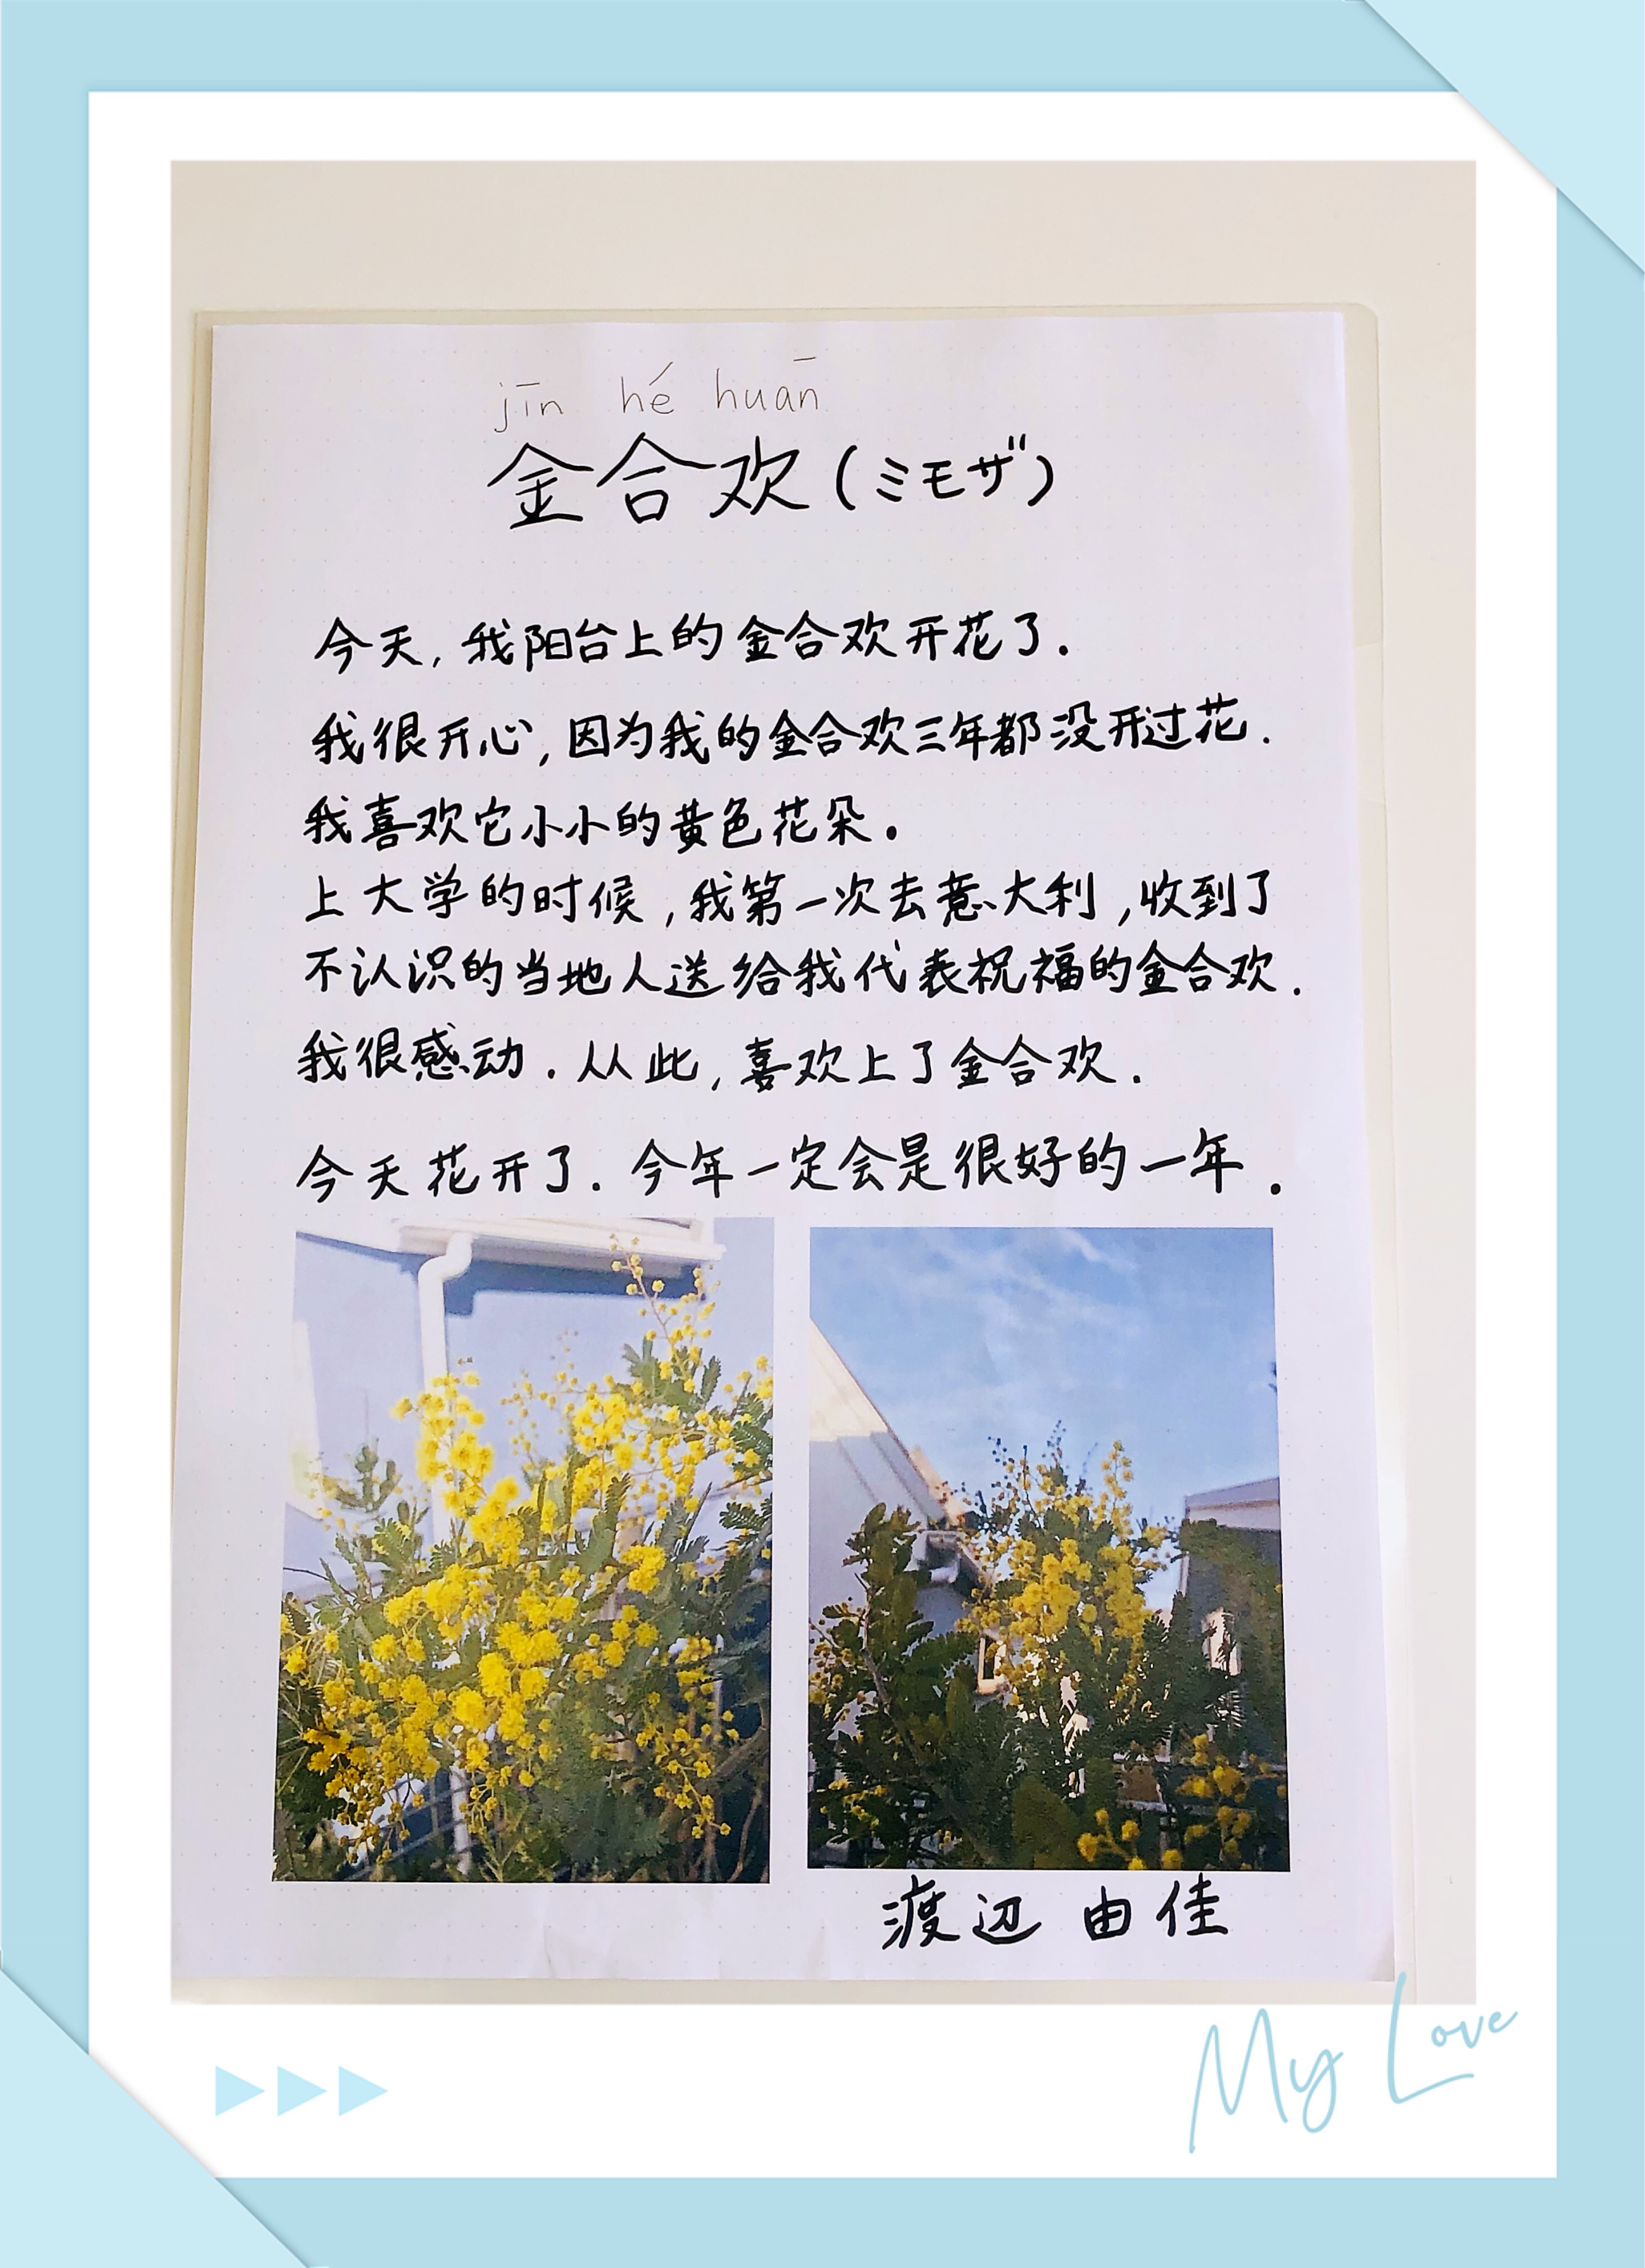 jīn hé huān
金合欢(ミモザ)
今天,我阳台上的金合欢开花了.
我很开心,因为我的金合欢三年都没开过花.
我喜欢它小小的黄色花朵.
上大学的时候,我第一次去意大利,收到了
不认识的当地人送给我代表祝福的金合欢.
我很感动.从此,喜欢上了金合欢.
今天花开了.今年一定会是很好的一年.
渡辺 由佳
My Love